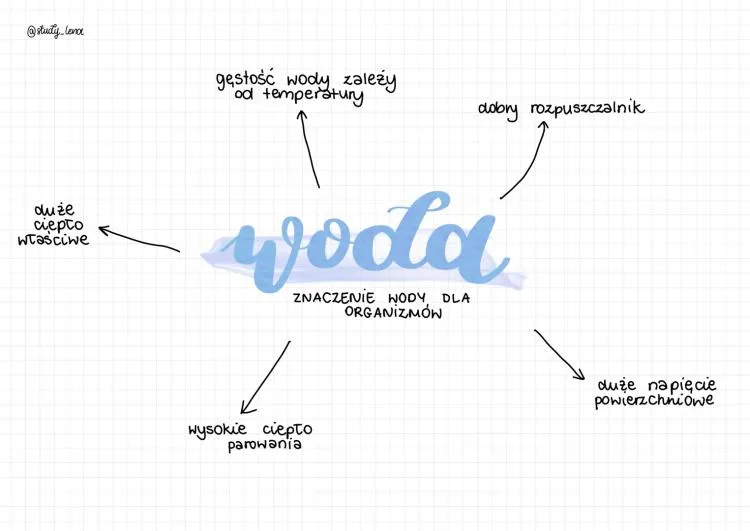 @study_lena
gęstość wody zależy
od temperatury
dobry rozpuszczalnik
duże
ciepło
właściwe
woda
ZNACZENIE WODY DLA
ORGANIZMÓW
duże napięcie
powierzchniowe
wysokie ciepło
parowania